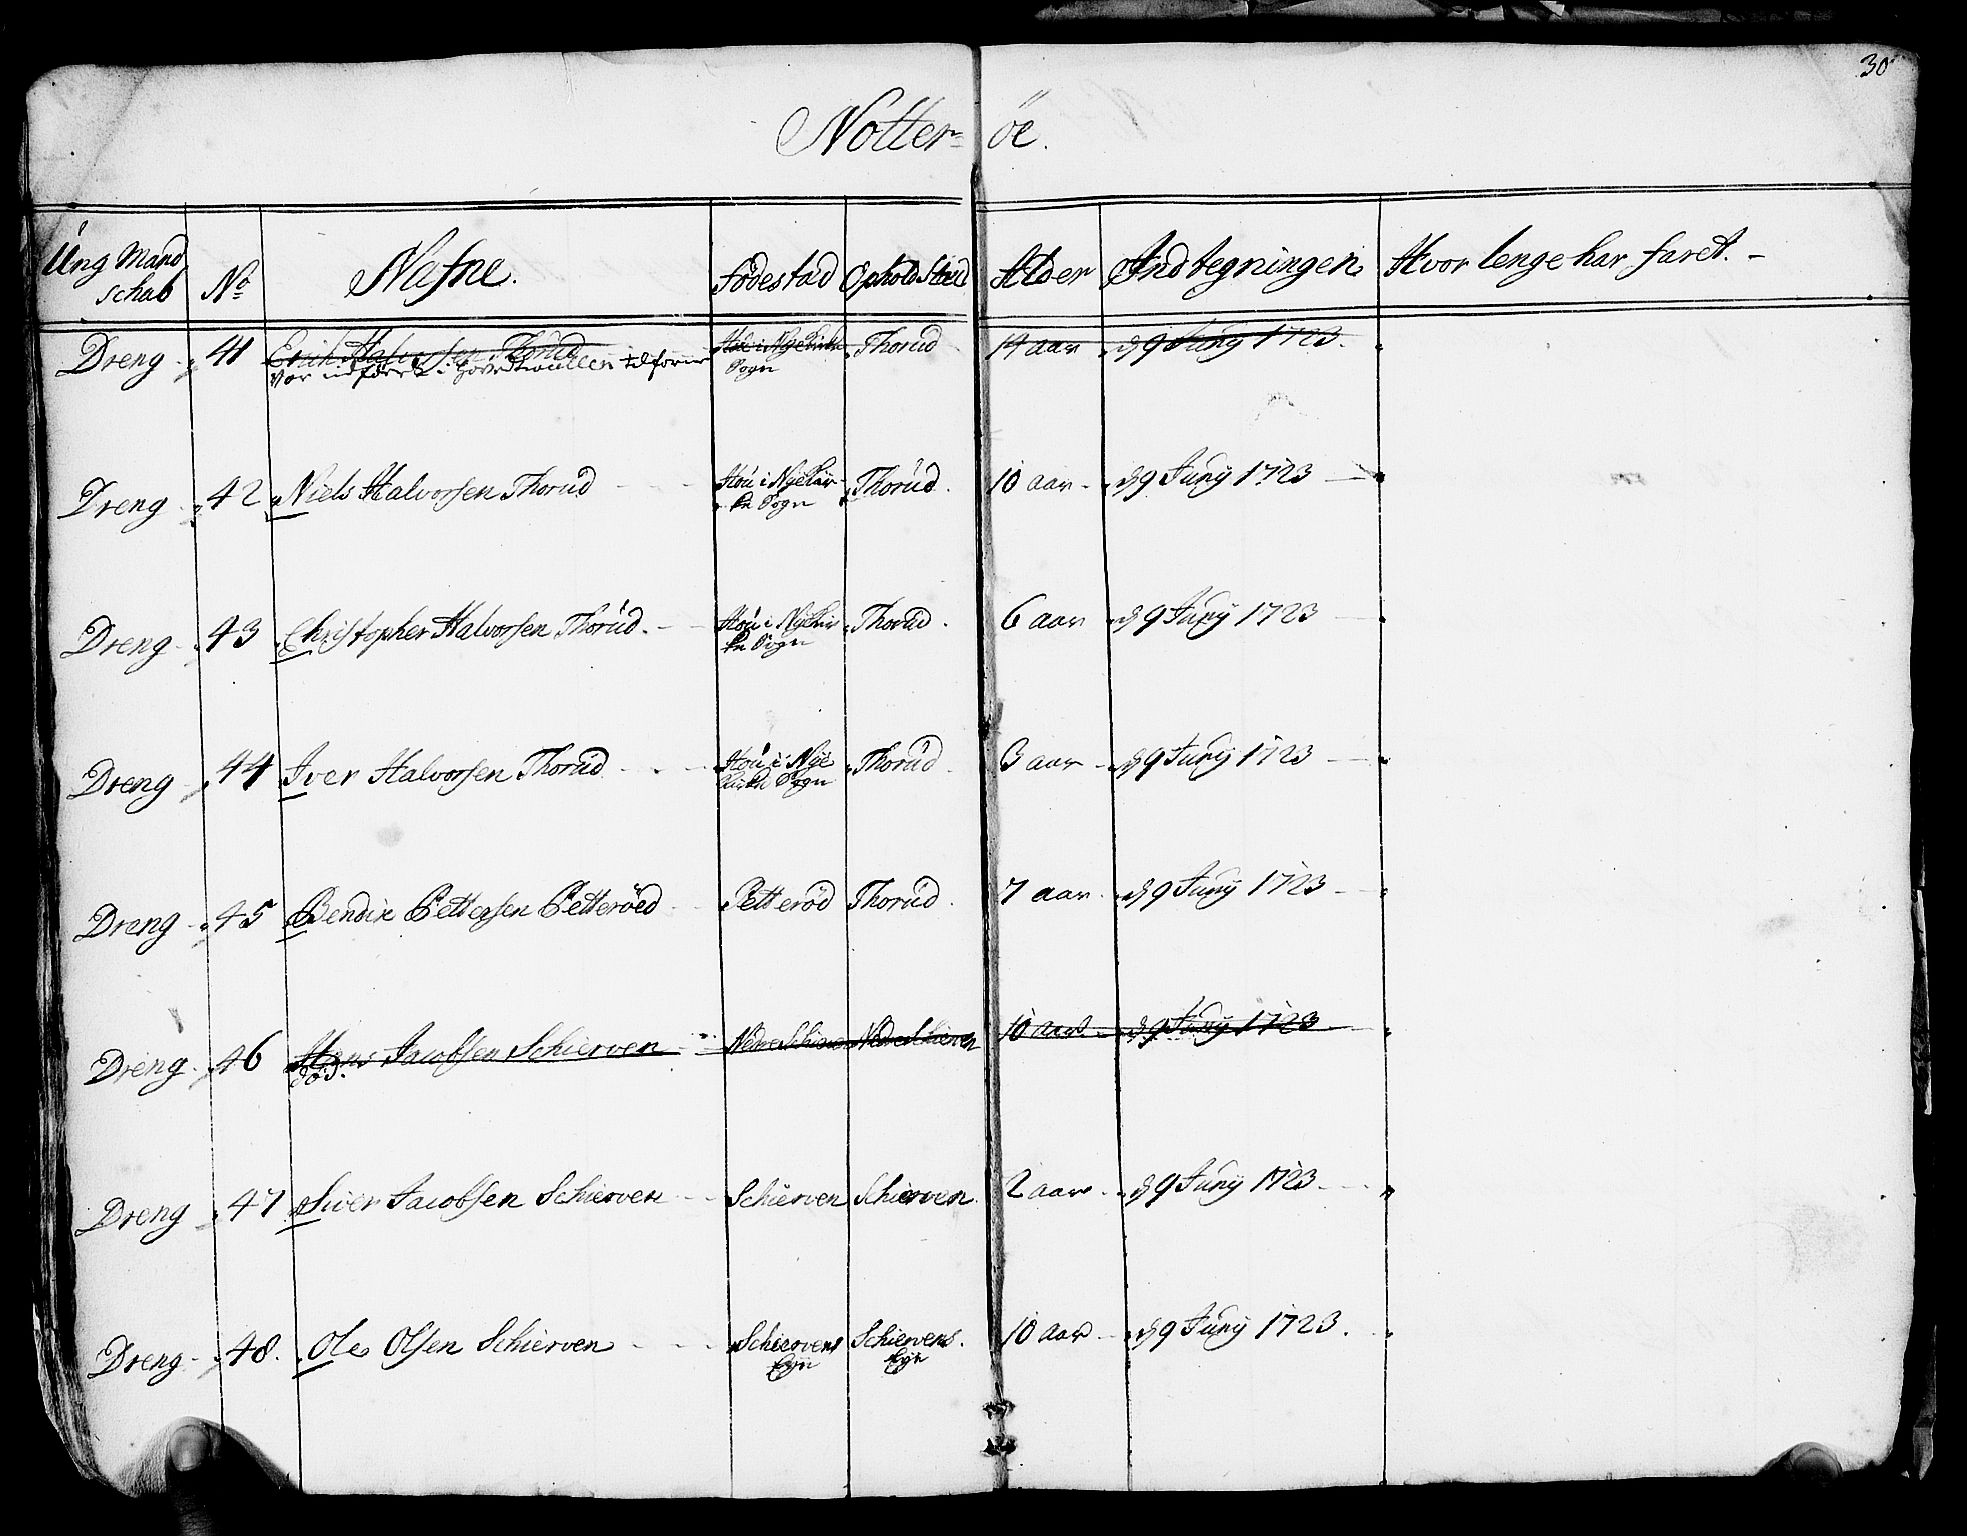 30
Notter- öe.
Ung Mand schab No Nafne. Födestäd Ophold Stæd Alder Indtegningen Hvor lenge har faret. -
Dreng 41 Erich Halvorsen Thorud Höu i Nye Kirke Sogn Thorud 14 aar d 9 Juny 1723.
Var indført i Hovedrullen tilforn
Dreng 42 Niels Halvorsen Thorud Höu i Nye Kir- ke Sogn Thorud. 10 aar d 9 Juny 1723
Dreng 43 Christopher Halvorsen Thorud. Höu i Nye Kir ke Sogn Thorud. 6 aar d 9 Juny 1723
Dreng 44 Iver Halvorsen Thorud Höu i Nye Kirke Sogn Thorud 3 aar d 9 Juny 1723
Dreng 45 Bendix Pettersen Petteröed Petteröd Thorud. 7 aar d 9 Juny 1723
Dreng 46 Hans Jacobsen Schierven Nedre Schierven Nedre Schierven 10 aar d 9 Juny 1723
död.
Dreng 47 Siver Jacobsen Schierven Schierven Schierven. 2 aar d 9 Juny 1723
Dreng 48. Ole Olsen Schierven Schiervens Eyje Schiervens. Eyje 10 aar d 9 Juny 1723.